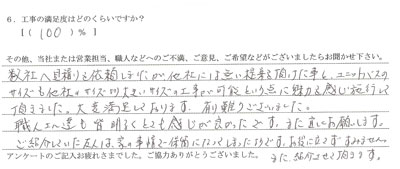 6．工事の満足度はどのくらいですか？
［（ 100 ）％］
その他、当社または営業担当、職人などへのご不満、ご意見、ご希望などがございましたらお聞かせ下さい。
数社へ見積りを依頼しましたが他社には無い提案を頂けた事と、ユニットバスの
サイズも他社のサイズより大きいサイズの工事が可能という点に魅力を感じ施行して
頂きました。大変満足しております。有難うございました。
職人さん達も皆明るくとても感じが良かったです。また宜しくお願いします。
ご紹介していた友人は、家の事情で保留になってしまったようです。お役に立てずすみません。
アンケートのご記入お疲れさまでした。ご協力ありがとうございました。
また、紹介させて頂きます。